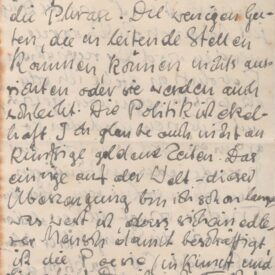 die Phrase. Die wenigen Gu-
ten, die in leitende Stellen
kommen können nichts aus-
richten oder sie werden auch
schlecht. Die Politik ist ekel-
haft. Ich glaube auch nicht an
künftige goldene Zeiten. Das
einzige auf der Welt – dieser
Überzeugung bin ich schon lange
was wert ist, dass sich ein edle-
rer Mensch damit beschäftigt
ist die Poesie (in Kunst und